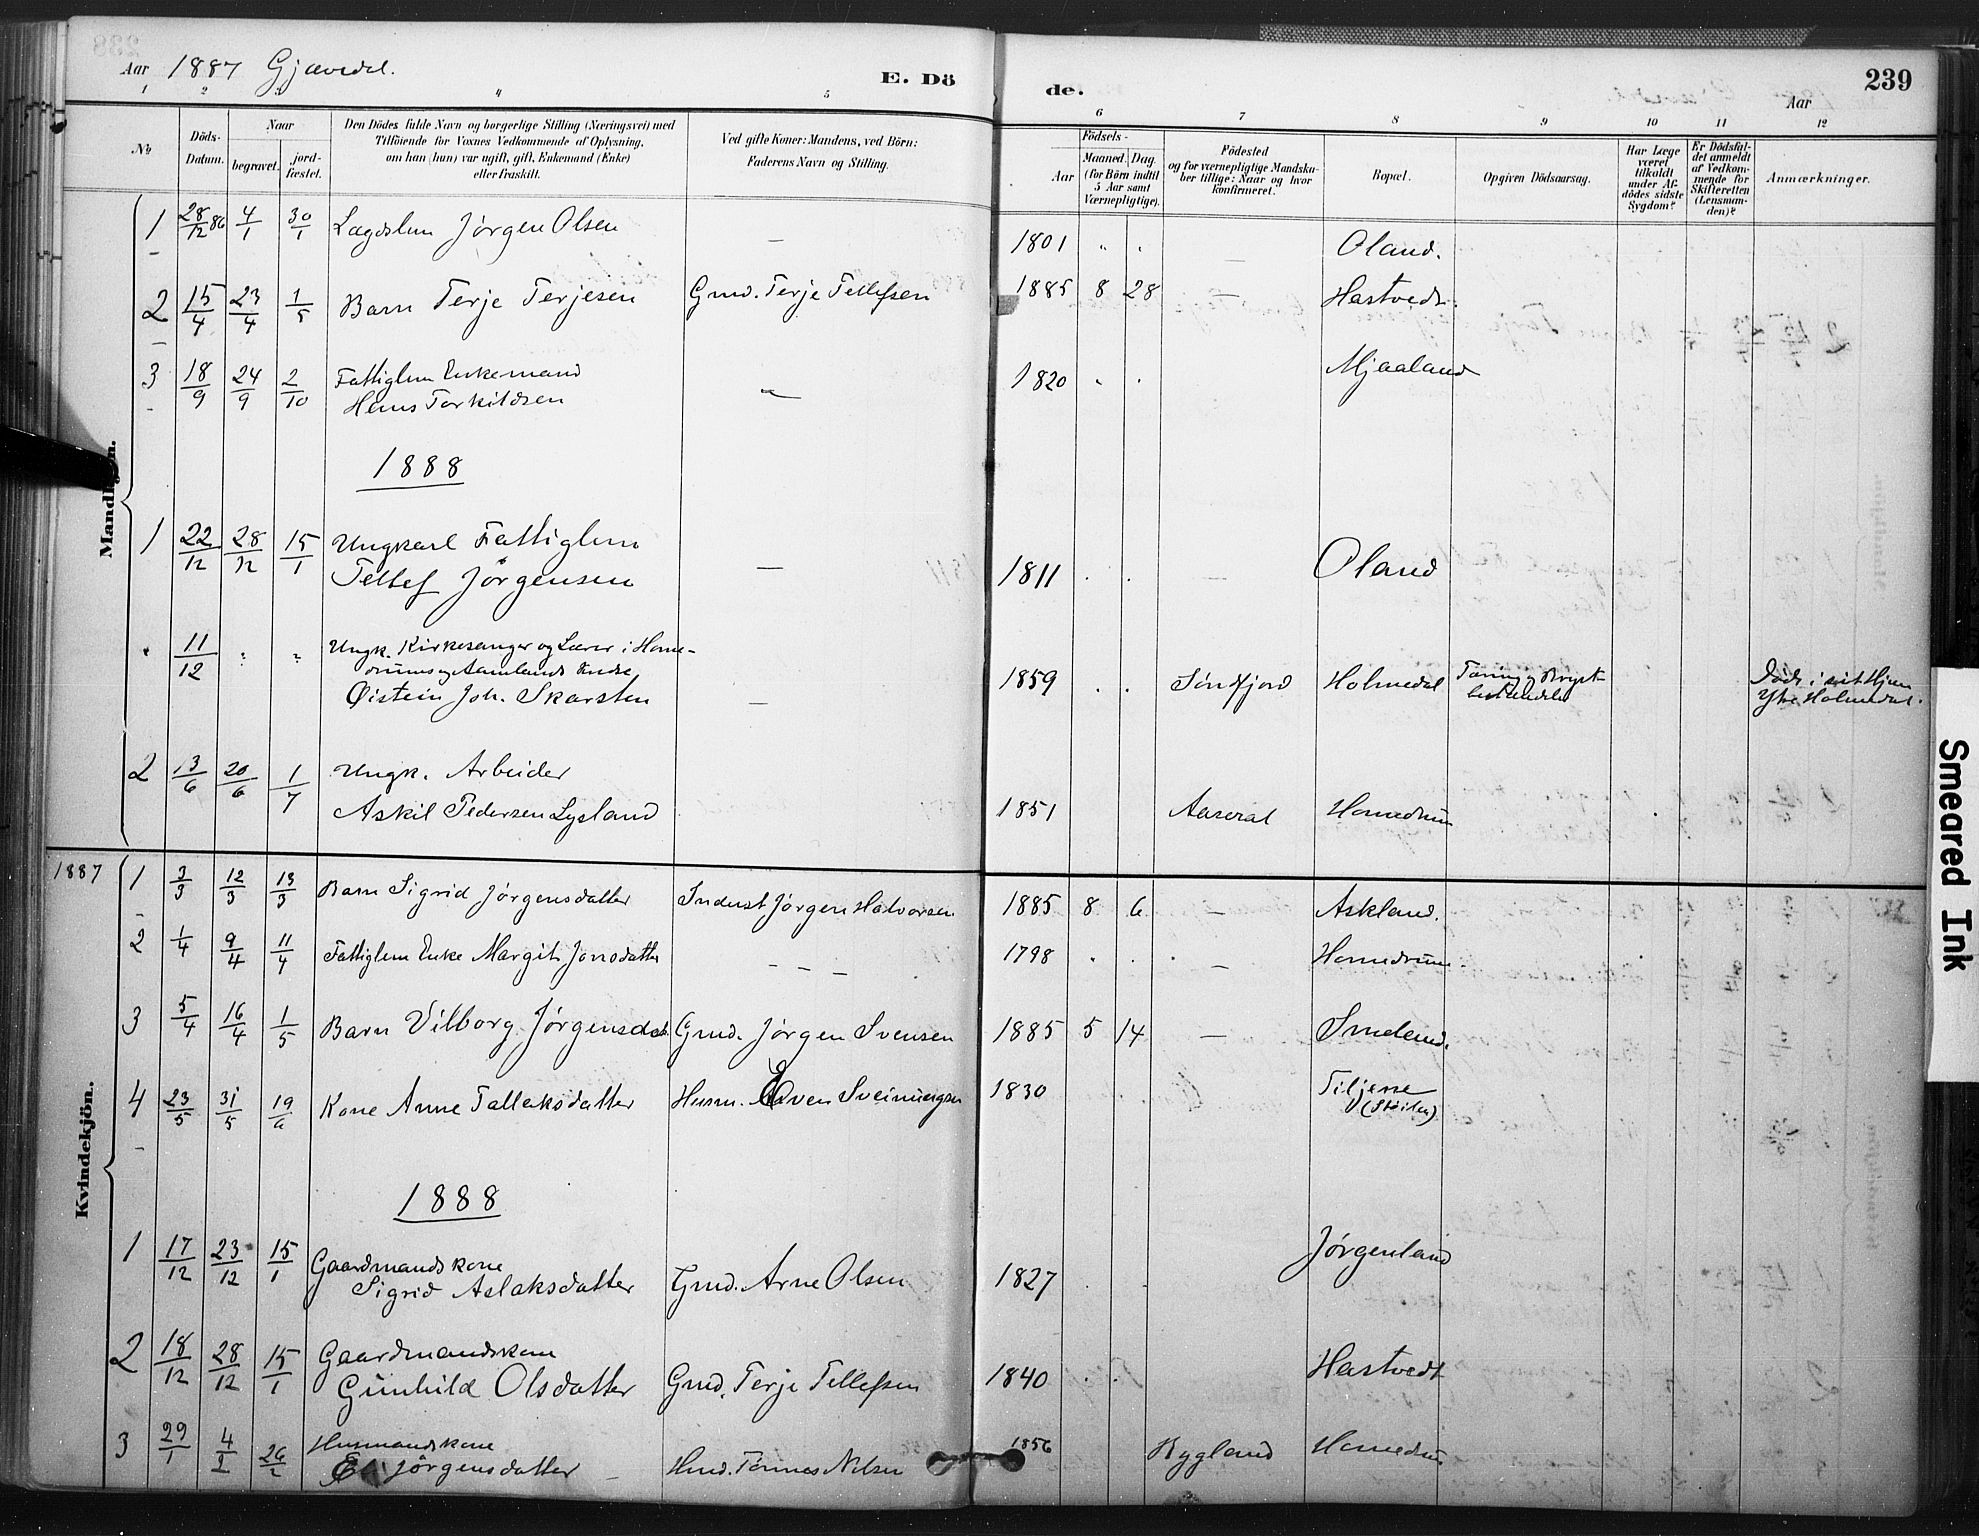 Aar 1887 Gjøvedal. E. Dö
de. Aar 239
1 2 4 5 6 7 8 9 10 11 12
No
Döds-
Datum.
Naar
begravet.
jord-
fæstet.
Den Dödes fulde Navn og borgerlige Stilling (Næringsvei) med
Tilföiende for Voxnes Vedkommende af Oplysning,
om han (hun) var ugift, gift, Enkemand (Enke)
eller fraskilt.
Ved gifte Koner: Mandens, ved Börn:
Faderens Navn og Stilling.
Födsels-
Aar
Maaned. Dag.
(for Börn indtil
5 Aar samt
Værnepligtige).
Födested
og for værnepligtige Mandska-
ber tillige: Naar og hvor
konfirmeret.
Bopæl.
Opgiven Dödsaarsag.
Har Læge
været
tilkaldt
under Af-
dödes sidste
Sygdom?
Er Dödsfal-
det anmeldt
af Vedkom-
mende for
Skifteretten
(Lensman-
den)?
Anmærkninger.
Mandkjön.
1 28/12 86 4/1 30/1 Lægdslem Jørgen Olsen — 1801 " " — Oland.
2 15/4 23/4 1/5 Barn Terje Terjesen Gmd. Terje Tellefsen 1885 8 28 — Hastvedt.
3 18/9 24/9 2/10 Fattiglem Enkemand
Hans Torkildsen — 1820 " " Mjaaland
1888
1 22/12 28/12 15/1 Ungkarl Fattiglem
Tellef Jørgensen — 1811 " " — Oland
" 11/12 " " Ungk. Kirkesanger og Lærer i Home-
drums og Aamlands Kredse
Øistein Joh. Skarsten — 1859 " " Søndfjord Holmedal Tæring og Bryst-
betændelse Døde i sit Hjem
Ytre Holmedal.
2 13/6 20/6 1/7 Ungk. Arbeider
Askil Pedersen Lysland 1851 Aaseral Homedrum
1887
Kvindekjön.
1 3/3 12/3 13/3 Barn Sigrid Jørgensdatter Inderst Jørgen Halvorsen 1885 8 6 — Askland.
2 1/4 9/4 11/4 Fattiglem Enke Margit Jonsdatter — — — 1798 " " — Homedrum.
3 5/4 16/4 1/5 Barn Vilborg Jørgensdatt. Gmd. Jørgen Svensen 1885 5 14 — Smeland.
4 23/5 31/5 19/6 Kone Anne Tallaksdatter Husm. Even Sveinungsen 1830
(Støilen)
1888
1 17/12 23/12 15/1 Gaardmandskone
Sigrid Aslaksdatter Gmd. Arne Olsen 1827 Jørgenland
2 18/12 28/12 15/1 Gaardmandskone
Gunhild Olsdatter Gmd. Terje Tellefsen 1840 Hastvedt
3 29/1 4/2 26/2 Husmandskone
Jørgensdatter — Hmd. Tønnes Nilsen 1856 Bygland Homedrum
Smeared Ink